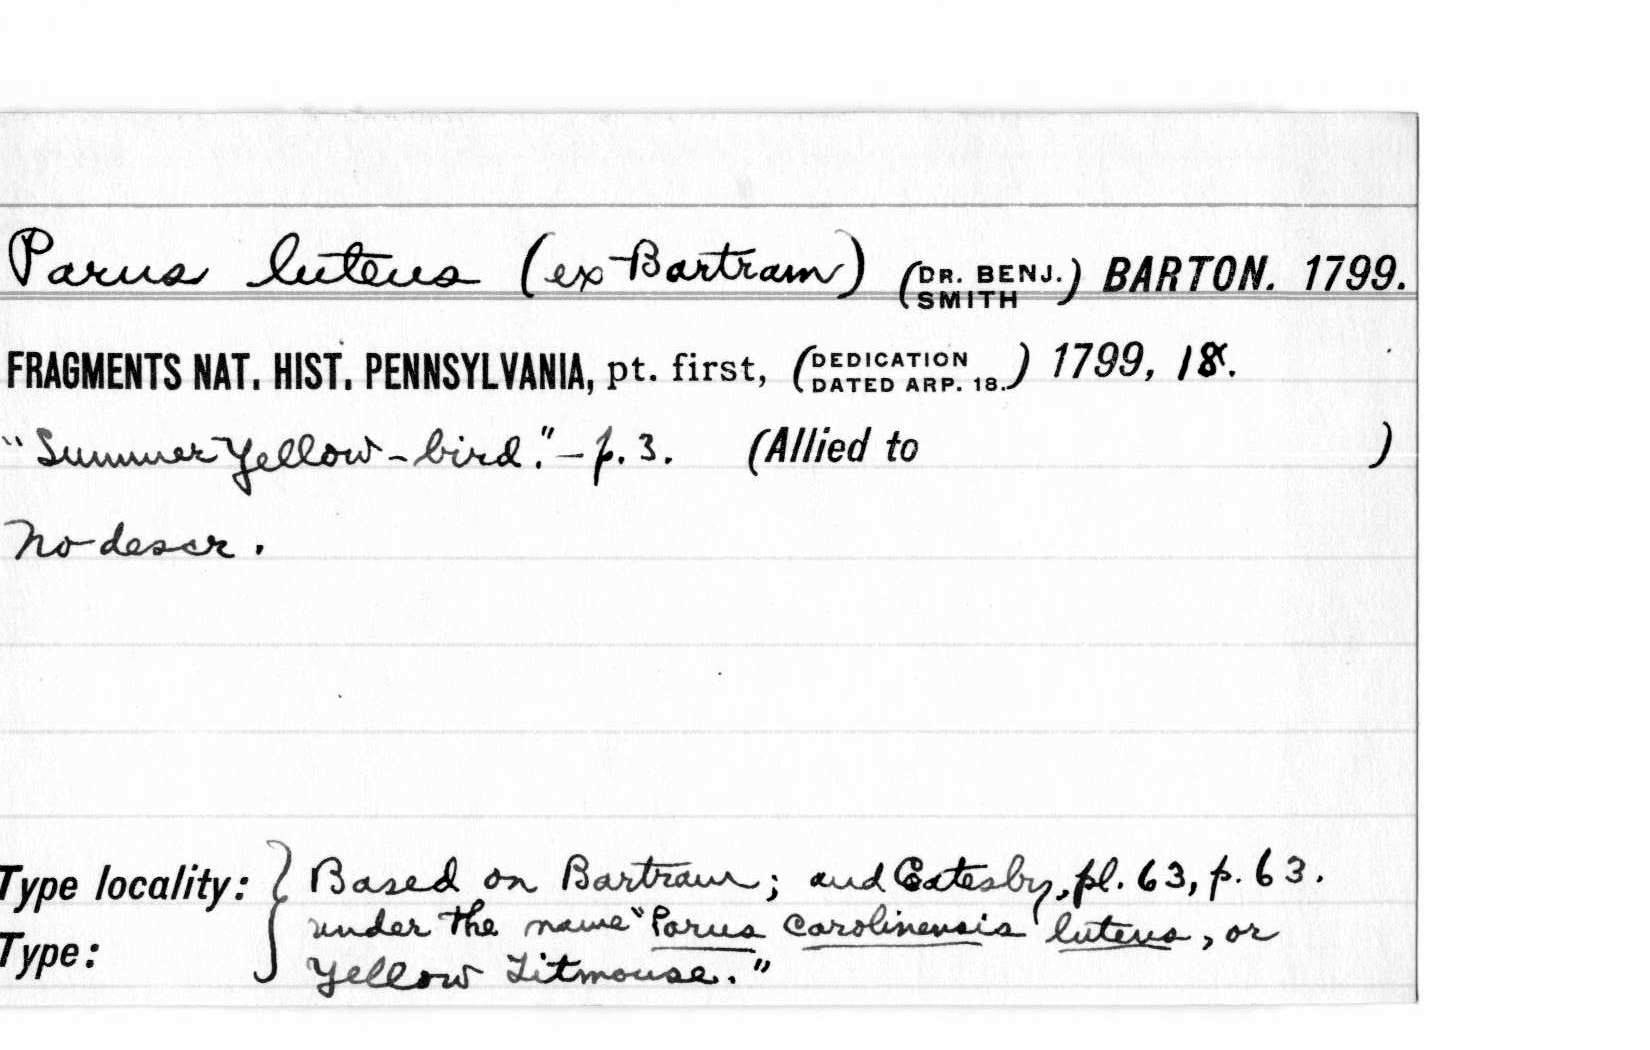 Parus luteus (ex Bartram) (DR. BENJ. SMITH) BARTON. 1799.
FRAGMENTS NAT. HIST. PENNSYLVANIA, pt. first, (DEDICATION DATED ARP. 18.) 1799, 18.
"Summer Yellow-bird."—p. 3. (Allied to )
No descr.
Type locality: } Based on Bartram; and Catesby, pl. 63, p. 63.
under the name "Parus Carolinensis luteus, or
Type: Yellow Titmouse."